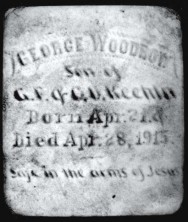 GEORGE WOODSON
Son of
G.F. & C.V.
Born Apr. 21,
Died Apr. 28, 1915.
Safe in the arms of Jesus